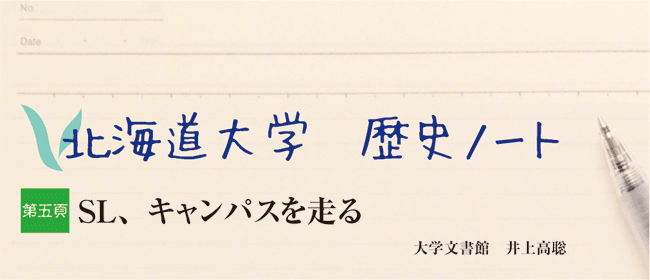 No.
Date
北海道大学 歴史ノート
第五頁 SL、キャンパスを走る
大学文書館 井上高聡